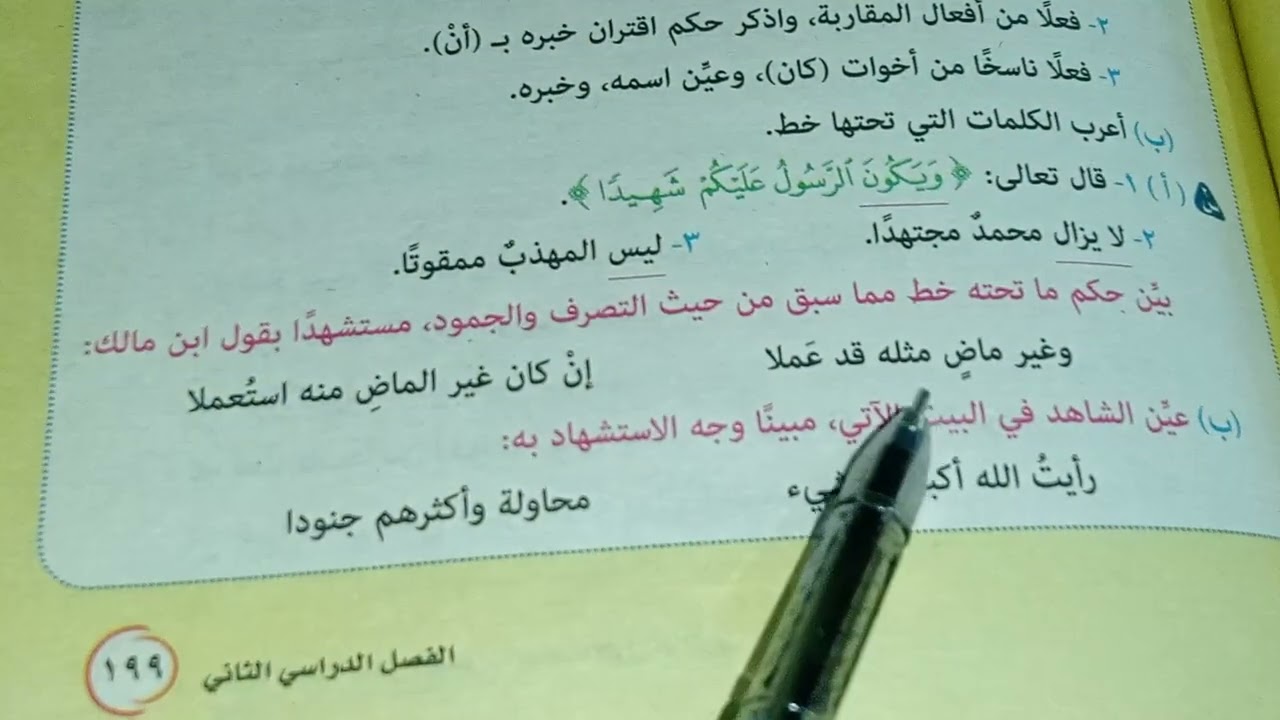 ٢- فعلًا من أفعال المقاربة، واذكر حكم اقتران خبره بـ (أنْ).
٣- فعلًا ناسخًا من أخوات (كان)، وعيِّن اسمه، وخبره.
(ب) أعرب الكلمات التي تحتها خط.
(أ) ١- قال تعالى: ﴿وَيَكُونَ ٱلرَّسُولُ عَلَيْكُمْ شَهِيدًا﴾.
٢- لا يزال محمدٌ مجتهدًا. ٣- ليس المهذبٌ ممقوتًا.
بيِّن حكم ما تحته خط مما سبق من حيث التصرف والجمود، مستشهدًا بقول ابن مالك:
وغير ماضٍ مثله قد عَملا إنْ كان غير الماضِ منه استُعملا
(ب) عيِّن الشاهد في البيت الآتي، مبينًا وجه الاستشهاد به:
رأيتُ الله محاولة وأكثرهم جنودا
الفصل الدراسي الثاني ١٩٩